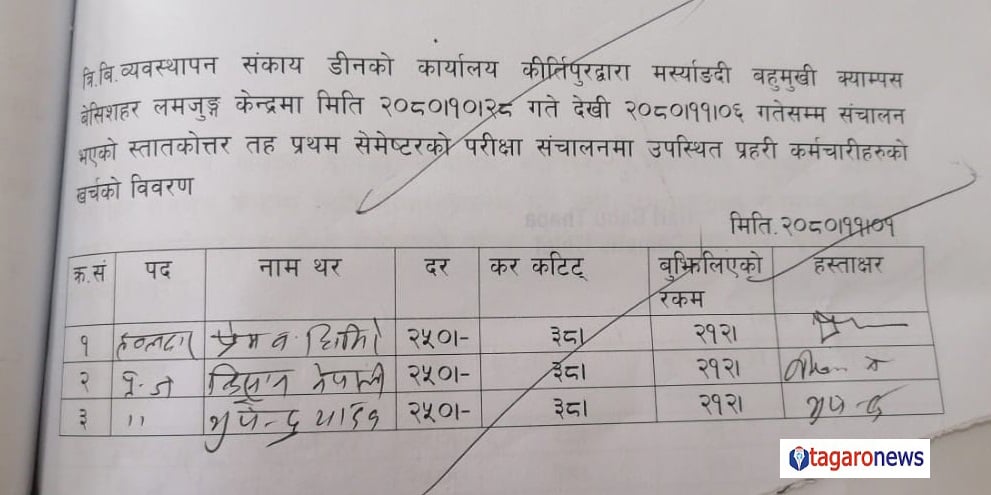 त्रि.बि.व्यवस्थापन संकाय डीनको कार्यालय कीर्तिपुरद्वारा मर्स्याङदी वहुमुखी क्याम्पस
बेसिशहर लमजुङ्ग केन्द्रमा मिति २०८०।१०।२८ गते देखी २०८०।११।०६ गतेसम्म संचालन
भएको स्तातकोत्तर तह प्रथम सेमेष्टरको परीक्षा संचालनमा उपस्थित प्रहरी कर्मचारीहरुको
खर्चको विवरण
मिति.२०८०।११।०१
क्र.सं पद नाम थर दर कर कटिट् बुझिलिएको रकम हस्ताक्षर
१ हवलदार प्रेम ब. २५०।- ३८। २१२।
२ प्र.ज नेपाली २५०।- ३८। २१२।
३ ,, भुपेन्द्र यादव २५०।- ३८। २१२। भुपेन्द्र
tagaronews